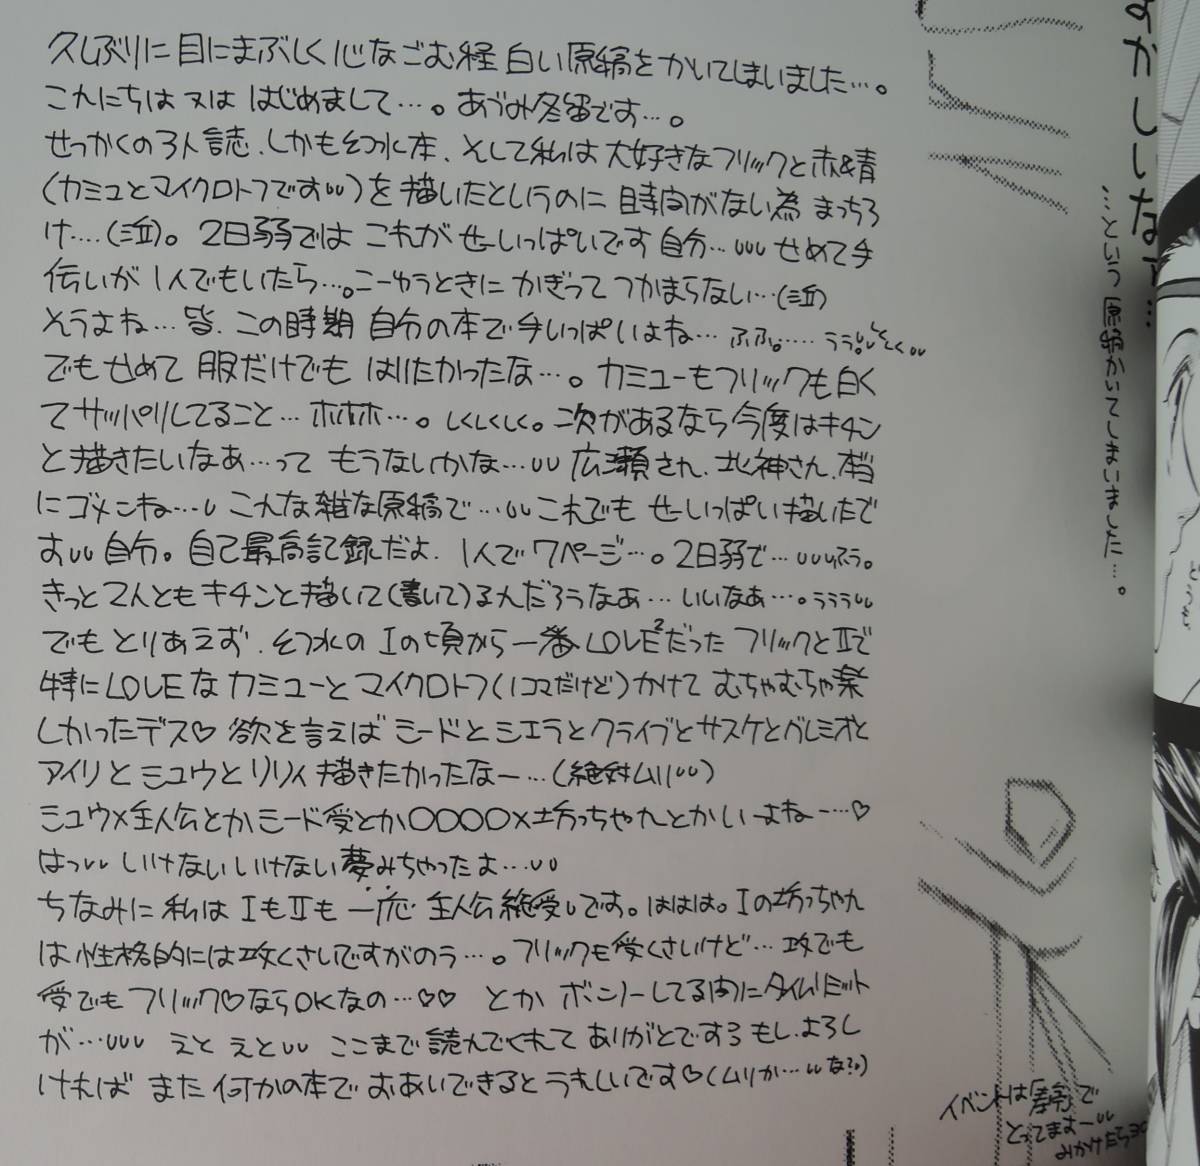 久しぶりに目にまぶしく心なごむ程白い原稿をかいてしまいました…。
こんにちは又は はじめまして…。あづみ冬留です…。
せっかくの3人誌、しかも幻水本、そして私は大好きなフリックと赤&青
(カミュとマイクロトフです)を描いたというのに時間がない為まっちろ
け….(泣)。2日弱ではこれがせーいっぱいです自分… せめて手
伝いが1人でもいたら…。こーゆうときにかぎってつかまらない…(泣)
そうよね…皆、この時期自分の本で手いっぱいよね…ふふ。…
でもせめて服だけでもはりたかったな…。カミューもフリックも白く
てサッパリしてること…ホホホ…。しくしくしく。次があるなら今度はキチン
と描きたいなあ…ってもうないかな… 広瀬さん、北神さん、本当
にゴメンね… こんな雑な原稿で… これでもせーいっぱい描いたで
す 自分。自己最高記録だよ、1人で7ページ…。2日弱で… ふう。
きっと2人ともキチンと描いて(書いて)るんだろうなあ…いいなあ…。ううう
でもとりあえず、幻水のIの頃から一番LOVE²だったフリックとIIで
特にLOVEなカミューとマイクロトフ(1コマだけど)かけてむちゃむちゃ楽
しかったデス♡ 欲を言えばシードとシエラとクライブとサスケとグレミオと
アイリとシュウとリリィ描きたかったなー…(絶対ムリ)
シュウ×主人公とかシード受とか〇〇〇〇×坊っちゃんとかいーよねー…♡
はっ いけないいけない夢みちゃったよ…
ちなみに私はIもIIも一応主人公総受けです。ははは。Iの坊っちゃん
は性格的には攻くさいですがのう…。フリックも受くさいけど…攻でも
受でもフリック♡ならOKなの…♡♡ とかボンノーしてる内にタイムリミット
が… えと えと ここまで読んでくれてありがとですろ もし、よろし
ければまた何かの本でおあいできるとうれしいです♡(ムリか… な?)
…という原稿かいてしまいました…。
イベントは でとってますー